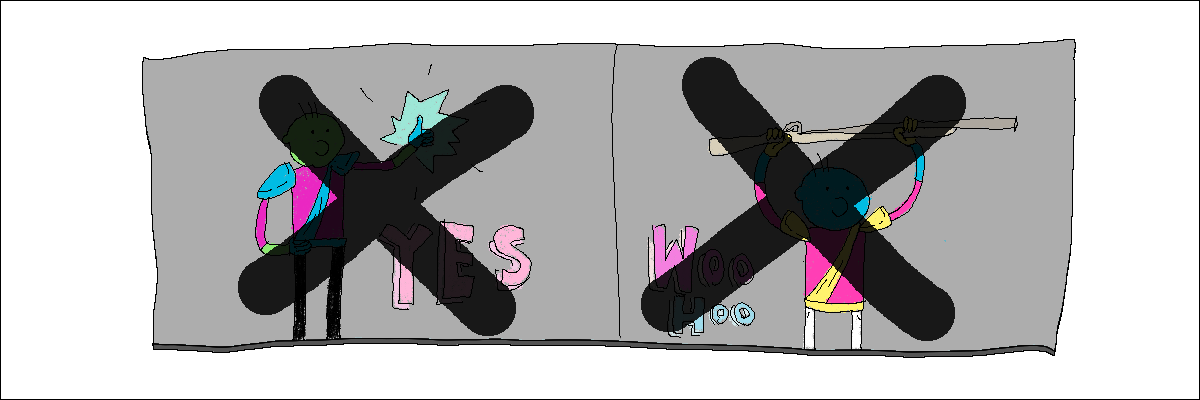 YES
WOO
HOO